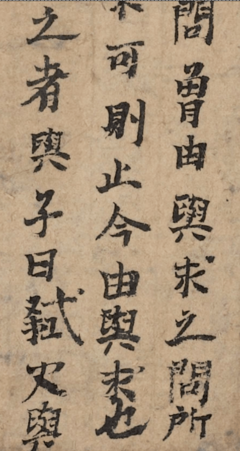 問曾由與求之問所
不可則止今由與求也
之者與子曰弑父與